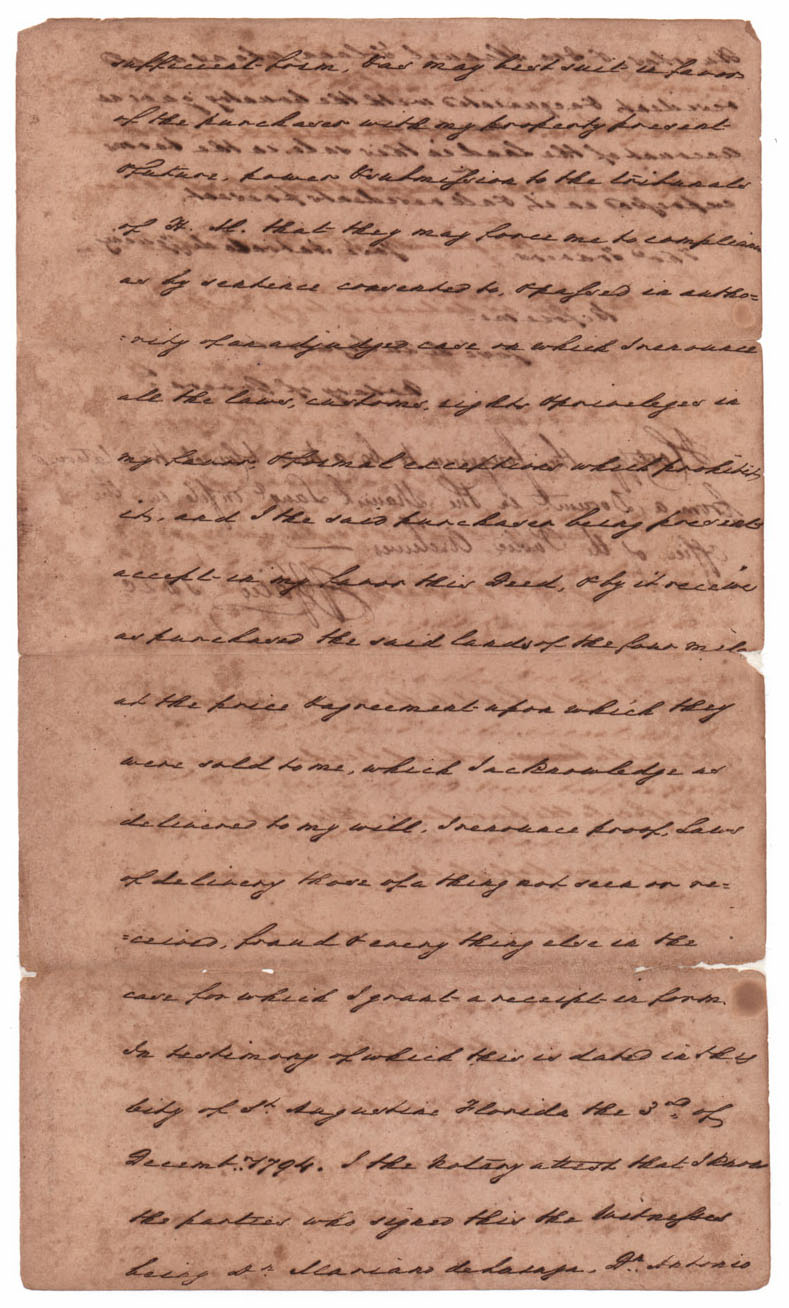 sufficient form, & as may best suit in favor
of the purchaser with my property present
& future, power & submission to the tribunals
of H. M. that they may force me to compliance
as by sentence consented to, & passed in autho=
=rity of an adjudged case on which I renounce
all the laws, customs, rights & priveleges in
my favor, & formal exceptions which prohibit
it, and I the said purchaser being present
accept in my favor this Deed, & by it receive
as purchased the said lands of the four mile
at the price & agreement upon which they
were sold to me, which I acknowledge as
delivered to my will, I renounce proof, Laws
of delivery those of a thing not seen or re=
=ceived, fraud & every thing else in the
case for which I grant a receipt in form.
In testimony of which this is dated in this
City of St. Augustine Florida the 3rd of
Decembr. 1794. I the Notary attest that I know
the parties who signed this the Witnesses
being Dn. Mariano de Lasaga, Dn. Antonio